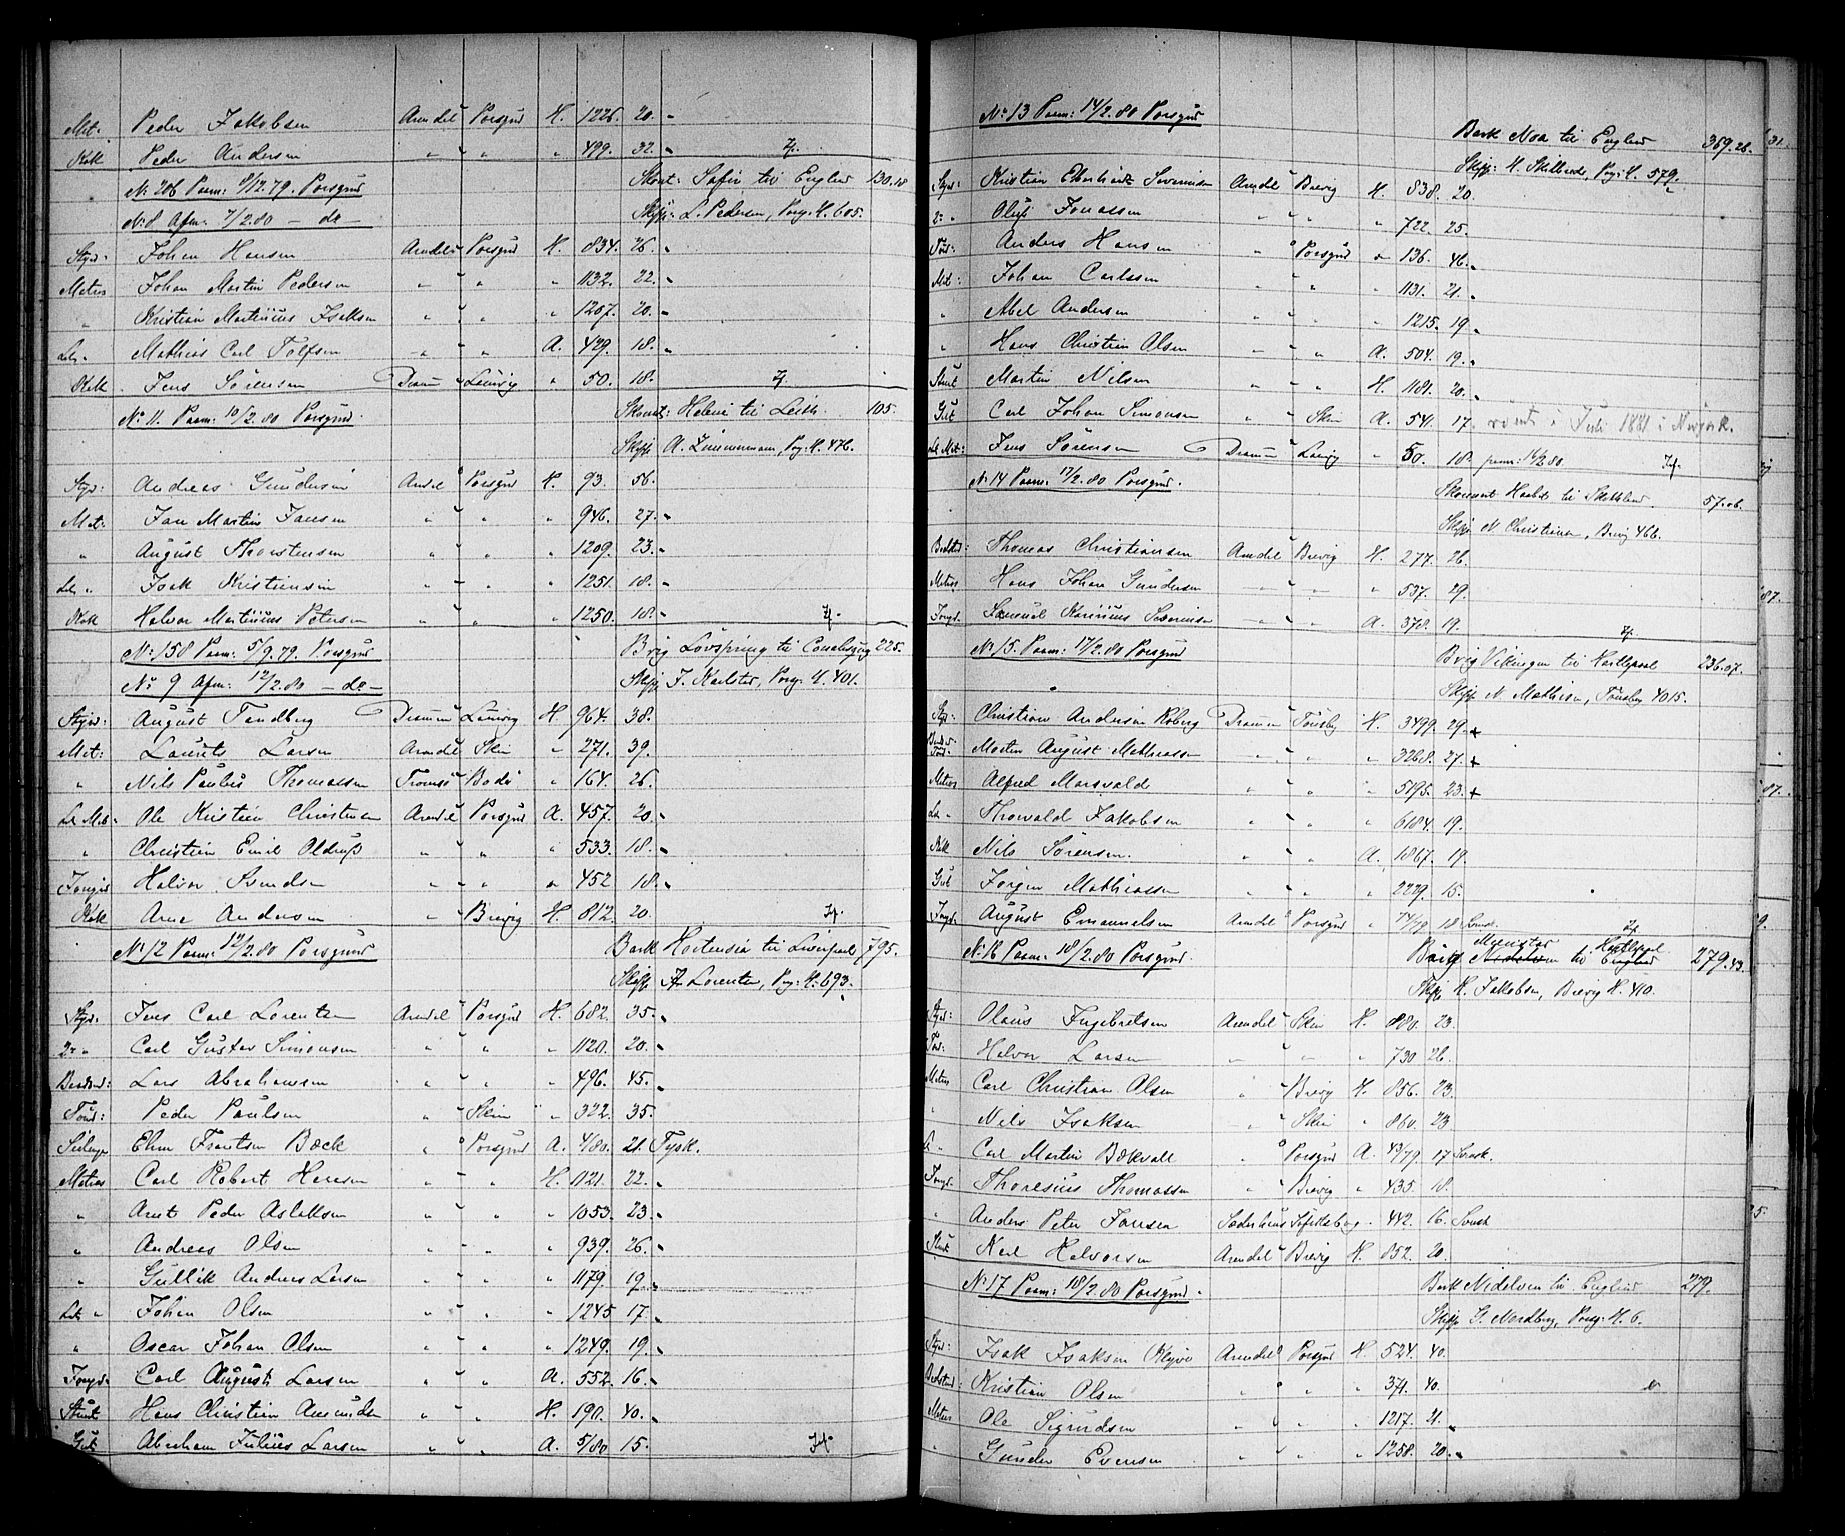 Mat: Peder Jakobsen Arendal Porsgrd H. 1226. 20.
Kok Peder Andersen " " " 499. 32.
No 206 Paam: 9/12.79. Porsgrd Skonst: Safir til England 130.18
No 8 Afm. 7/2.80 — do — Skipp: L. Pedersen, Porsg. H. 605.
Styrd: Johan Hansen Arendal Porsgrd H. 834. 26.
Matros Johan Martin Pedersen " " " 1132. 22.
" Kristian Martinius Isaksen " " " 1207. 20.
Let " Mathias Carl Tolfsen " " A. 429. 18.
Kok Jens Sørensen Dramm Laurvig " 50. 18.
No 11. Paam: 10/2.80 Porsgrd. Skonst: Helene til Leith 105.
Skipp A. Zimmermann, Porsg: H. 476.
Styrd: Andreas Gundersen Arendal Porsgrd H. 93. 56.
Mat: Jan Martin Jansen " " " 946. 27.
" August Thorstensen " " " 1209. 23.
Let " Isak Kristiansen " " " 1251. 18.
Kok Halvor Martinius Petersen " " " 1250. 18.
No 158 Paam: 5/9.79. Porsgrd Brig Løvspring til 225.
No 9 Afm. 12/2.80 — do — Skipp J. Karlsen, Porsg. H. 401.
Styrd: August Tandberg Dramm Laurvig H. 964. 38.
Mat: Lauritz Larsen Arendal Skien " 271. 39.
" Nils Paulus Thomassen Tromsø Bodø " 164. 26.
Let Mat. Ole Kristian Christensen Arendal Porsgrd A. 457. 20.
" Christian Emil Oldrup " " " 533. 18.
Jongm Halvor Svendsen " " " 452 18.
Kok Arne Andersen " Brevig H. 812. 20.
No 12 Paam: 12/2.80 Porsgrund Bark Hortensia til Liverpool 795.
Skipp A. Lorentsen, Porsg: H. 693.
Styrd: Jens Carl Lorentsen Arendal Porsgrd H. 682. 35.
2den " Carl Gustav Simonsen " " " 1120. 20.
Baadsmd: Lars Abrahamsen " " " 496. 45.
Tømd: Peder Paulsen " Skien " 322. 35.
Seilmgr Frantsen Bæck " Porsgrd A. 4/80. 21. Tysk.
Matros Carl Robert Hansen " " H. 1121. 22.
" Arnt Peder Aslaksen " " " 1053. 23.
" Andreas Olsen " " " 939. 26.
" Gullik Andreas Larsen " " " 1179. 19.
Let " Johan Olsen " " " 1245 17.
" Oscar Johan Olsen " " " 1249. 19.
Jongd. Carl August Larsen " " A. 552. 16.
Stuert Hans Christian Amundsen " " H. 190. 40.
Gut Abraham Julius Larsen " " A. 5/80 15.
No 13 Paam: 14/2.80 Porsgrd
Bark Noa til England 369.26.
Skipp: H. Porsg. H. 579.
Styrd: Kristian Eberhardt Severinsen Arendal Brevig H. 838. 20.
2den " Olaf Jonassen " " " 722. 25.
Tømd: Anders Hansen " Porsgrd " 136. 46.
Mat: Johan Carlssen " " " 1131. 21.
" Abel Andersen " " " 1215. 19
" Hans Christian Olsen " " A. 504. 19.
Stuert Martin Nilsen " " H. 1181. 20.
Gut Carl Johan Simonsen " Skien A. 541. 17. rømt i Juli 1881 i Newyork.
Let Mat: Jens Sørensen Dramm Laurvig " 50. 18. paam: 16/2 80.
No 14 Paam: 17/2.80 Porsgrd. Skonnert Haabet til Shetland 57.06.
Skipp N. Christiansen, Brevig 466.
Bedstmd: Thomas Christiansen Arendal Brevig H. 277. 26.
Matros Hans Johan Gundersen " " " 537. 29.
Jongd. Samuel Severinsen " " A. 378. 19.
No 15. Paam: 17/2.80 Porsgrd Brig Vikingen til Hartlepool 236.07.
Skipp N. Mathisen, Tønsberg 4015.
Styr: Christian Andersen Roberg Dramm Tønsberg H. 3499. 29.
Tømd: Morten August Mathiassen " " " 3268. 27.
Matros Alfred Marsvold " " " 5195. 23.
Let " Thorvald Jakobsen " " " 6184. 19.
Kok Nils Sørensen. " " A. 1867. 19.
Gut Jørgen Mathiassen " " " 2229. 15.
Jongd. August Emanuelsen Arendal Porsgrd " 74/79. 18
No 16 Paam: 18/2.80 Porsgrd. Brig til England Hartlepool 279.43.
Skipp H. Jakobsen, Brevig H. 410.
Styrd: Olaus Ingebretsen Arendal Skien H. 880. 23.
Tømd: Halvor Larsen " " " 730 26.
Matros Carl Christian Olsen " Brevig H. 856. 23.
" Nils Isaksen " Skien " 860. 23
Carl Martin Bækvall " Porsgrd A. 43/79. 17 Svensk.
Jongd. Thoresius Thomassen " Brevig " 435. 18.
" Anders Peter Jansen " 442. 16. Svensk
Stuert Karl Halvorsen Arendal Brevig H. 852. 20.
No 17 Paam: 18/2.80 Porsgrd. Bark Nidelven til England 279.
Skipp G. Nordberg, Porsg. H. 6.
Styrd: Isak Isaksen Klyve Arendal Porsgrd H. 524. 40.
Bedstmd: Kristian Olsen " " " 371. 40.
Matros Ole Sigurdsen " " " 1217. 21.
" Gunder Evensen " " " 1258. 20.